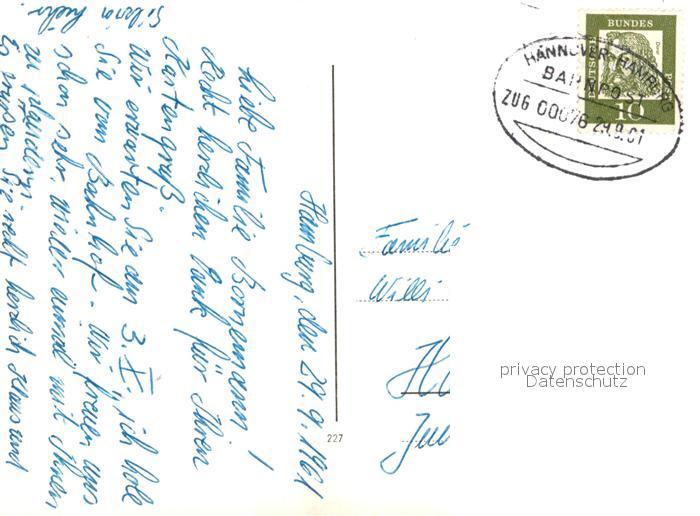 Hamburg, den 29.9.1961
Liebe Familie Bornemann!
Recht herzlichen Dank für Ihren
Kartengruß.
Wir erwarten Sie am 3. X., ich hole
Sie vom Bahnhof. Wir freuen uns
schon sehr, wieder einmal mit Ihnen
zu plaudern.
Es grüßen Sie recht herzlich
227
Familie
Willi
BUNDES
10
HANNOVER-HAMBURG
BAHNPOST
ZUG 00076 29.9.61
privacy protection
Datenschutz